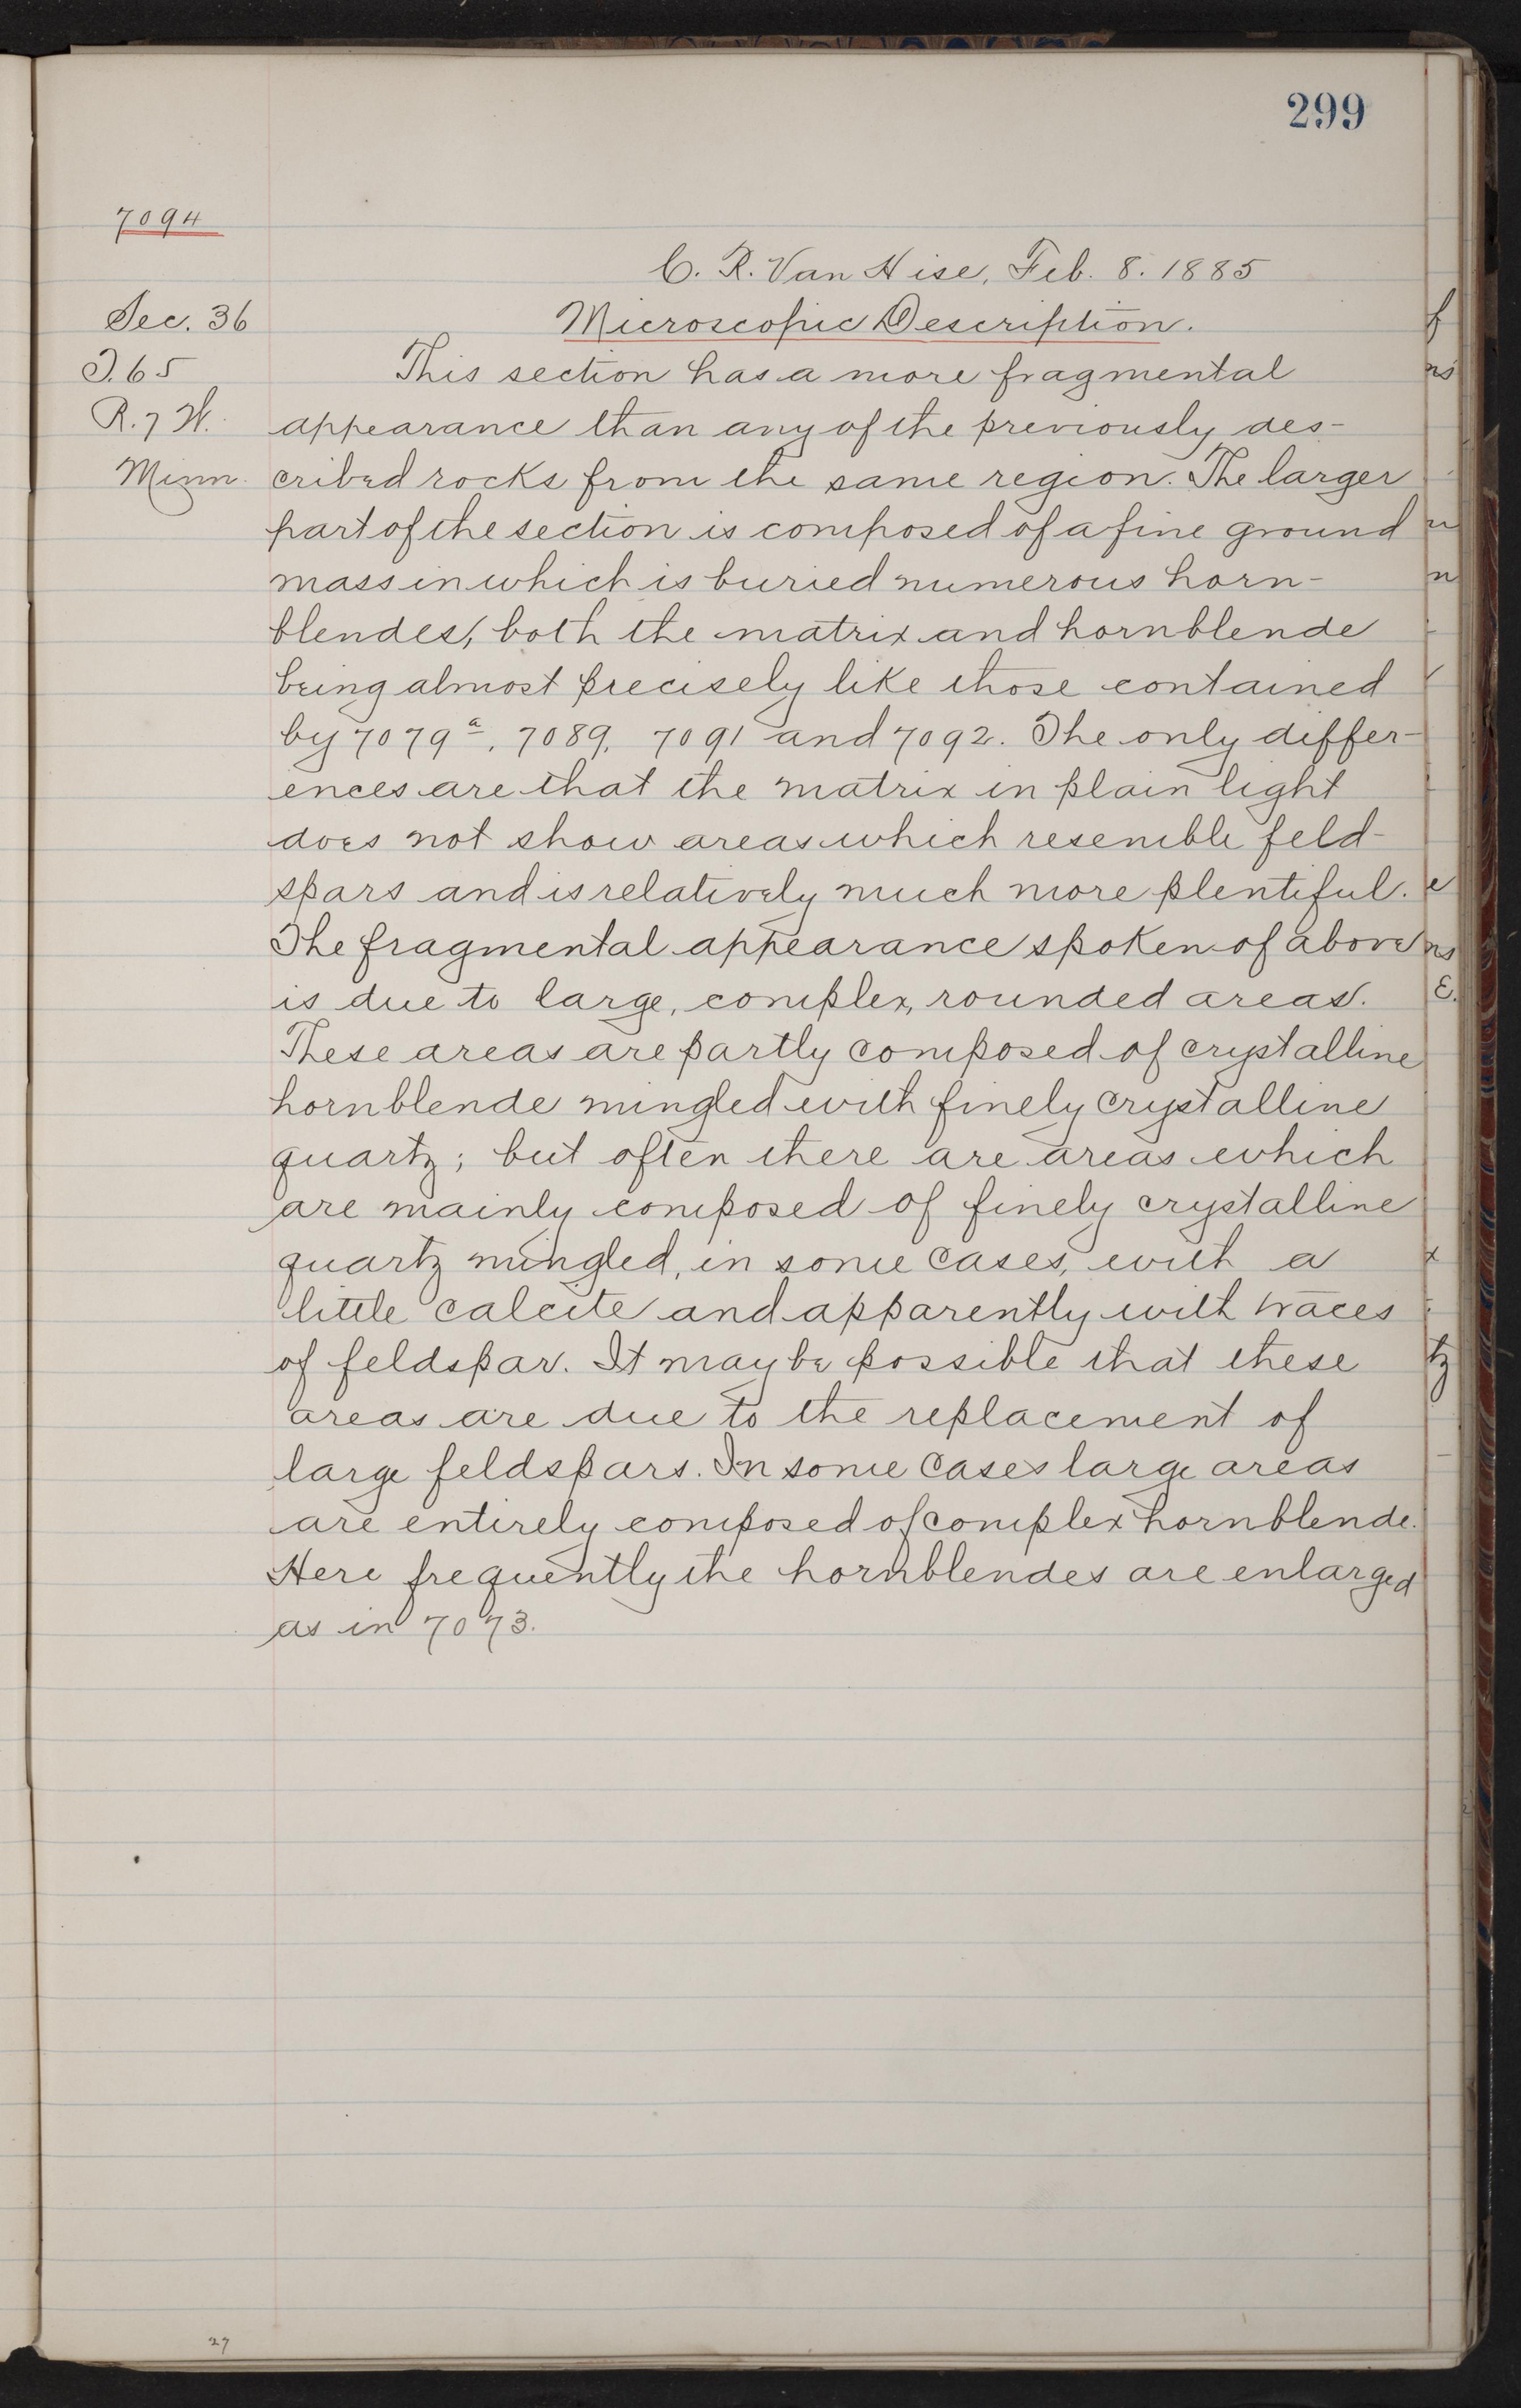 299
7094
C. R. Van Hise, Feb. 8. 1885
Sec. 36
Microscopic Description.
T. 65
This section has a more fragmental
R. 7 W.
appearance than any of the previously des-
Minn.
cribed rocks from the same region. The larger
part of the section is composed of a fine ground
mass in which is buried numerous horn-
blendes, both the matrix and hornblende
being almost precisely like those contained
by 7079a, 7089, 7091 and 7092. The only differ-
ences are that the matrix in plain light
does not show areas which resemble feld-
spars and is relatively much more plentiful.
The fragmental appearance spoken of above
is due to large, complex, rounded areas.
These areas are partly composed of crystalline
hornblende mingled with finely crystalline
quartz; but often there are areas which
are mainly composed of finely crystalline
quartz mingled, in some cases, with a
little calcite and apparently with traces
of feldspar. It may be possible that these
areas are due to the replacement of
large feldspars. In some cases large areas
are entirely composed of complex hornblende.
Here frequently the hornblendes are enlarged
as in 7073.
27